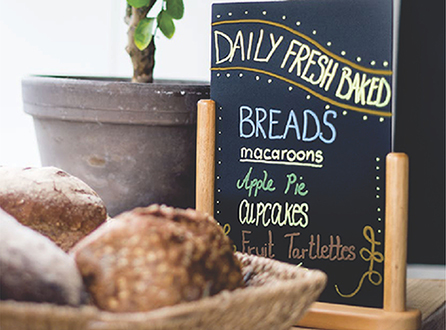 DAILY FRESH BAKED
BREADS
macaroons
Apple Pie
CUPCAKES
Fruit Tartlettes